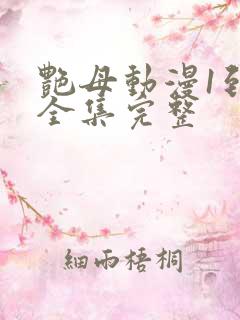 艷母動漫1到
全集完整
細雨梧桐